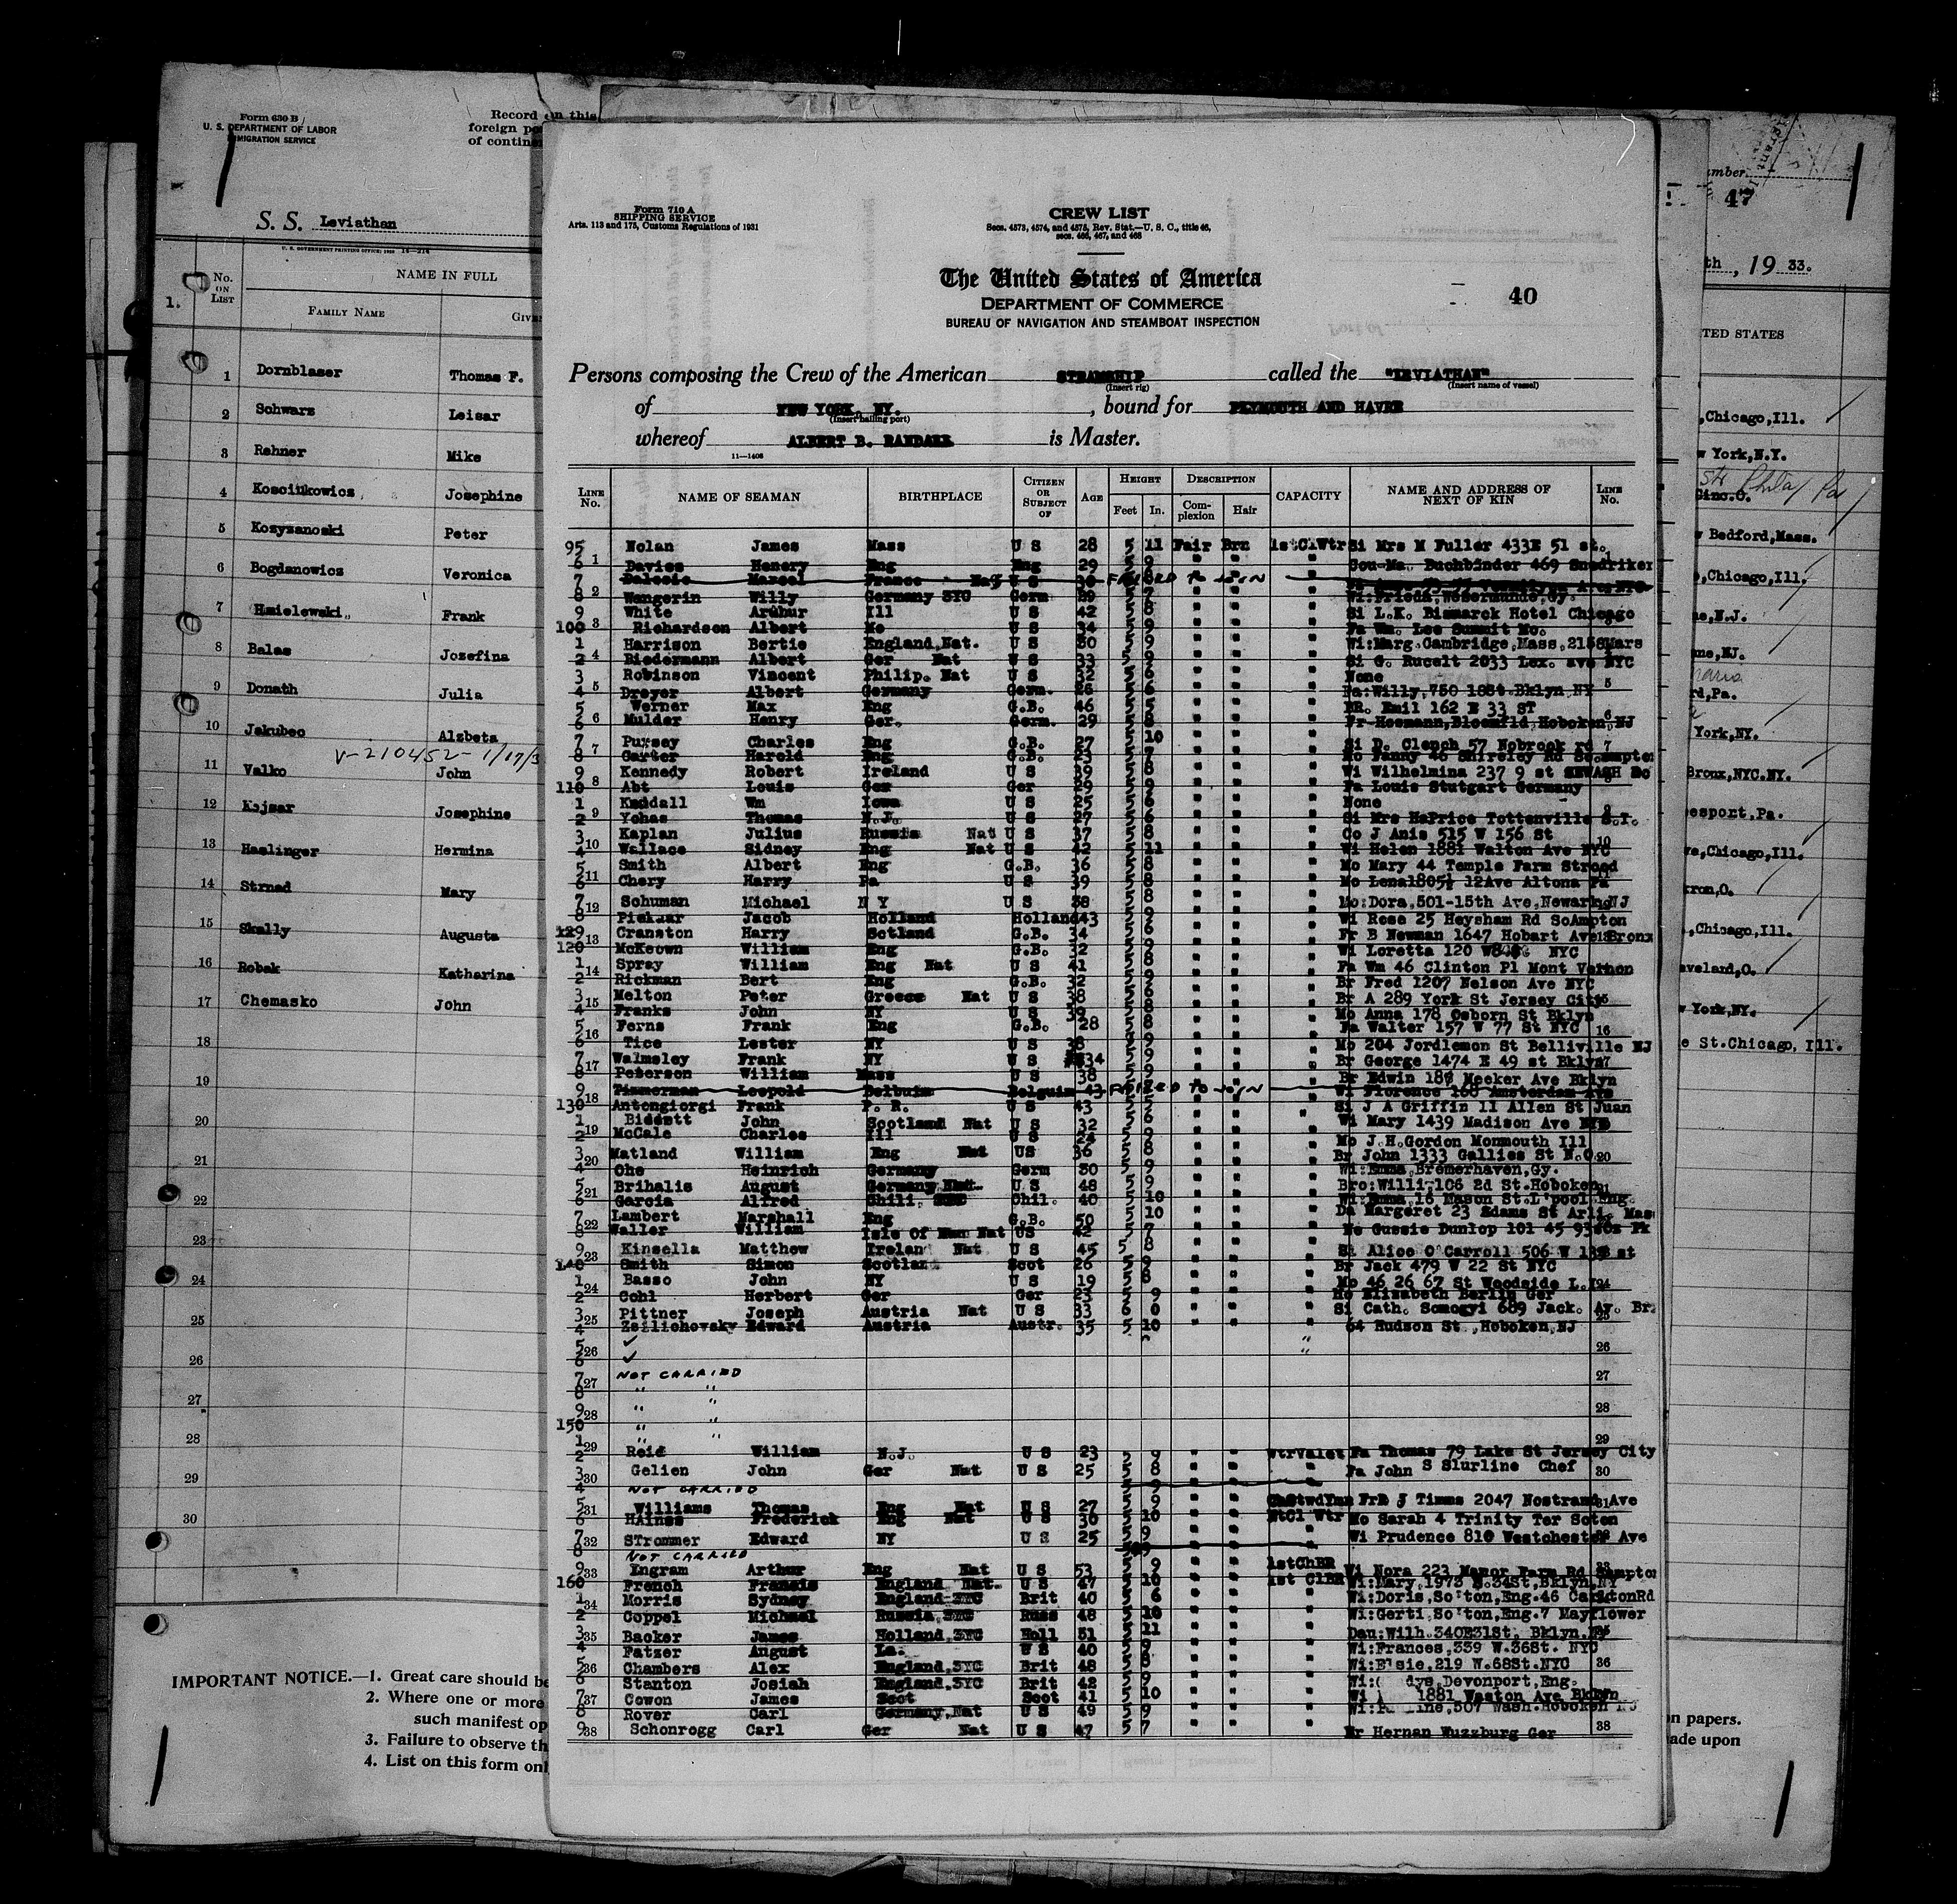 Form 630 B
U. S. DEPARTMENT OF LABOR
IMMIGRATION SERVICE
Record on this
foreign po
of contin
S. S. Leviathan
No. ON LIST
NAME IN FULL
1.
FAMILY NAME
GIVE
1 Dornblaser Thomas F.
2 Schwarz Leisar
3 Rehner Mike
4 Kosciukowicz Josephine
5 Kozyzanoski Peter
6 Bogdanowicz Veronica
7 Hmielewski Frank
8 Balas Jozefina
9 Donath Julia
10 Jakubec Alzbeta
V-210452- 1/17/3
11 Valko John
12 Kajsar Josephine
13 Haslinger Hermina
14 Strnad Mary
15 Skally Augusta
16 Robak Katharina
17 Chemasko John
18
19
20
21
22
23
24
25
26
27
28
29
30
IMPORTANT NOTICE.—1. Great care should be
2. Where one or more
such manifest op
3. Failure to observe th
4. List on this form onl
Form 710 A
SHIPPING SERVICE
Arts. 113 and 175, Customs Regulations of 1931
CREW LIST
Secs. 4573, 4574, and 4575, Rev. Stat.—U. S. C., title 46,
secs. 466, 467, and 468
The United States of America
DEPARTMENT OF COMMERCE
BUREAU OF NAVIGATION AND STEAMBOAT INSPECTION
40
Persons composing the Crew of the American STEAMSHIP called the "LEVIATHAN"
(Insert rig) (Insert name of vessel)
of NEW YORK, NY. , bound for PLYMOUTH AND HAVRE
(Insert hailing port)
whereof ALBERT B. RANDALL is Master.
11—1408
LINE No. NAME OF SEAMAN BIRTHPLACE CITIZEN OR SUBJECT OF AGE HEIGHT DESCRIPTION CAPACITY NAME AND ADDRESS OF NEXT OF KIN LINE No.
Feet In. Complexion Hair
95 Nolan James Mass U S 28 5 11 Fair Brn 1stClWtr Si Mrs M Fuller 433E 51 st.
6 Davies Henery Eng Eng 29 5 9 " " " Cou-Ma. Buchbinder 469 Snedriker
7 Dalesie Marcel France Nat U S FAILED TO JOIN
8 Wangerin Willy Germany SYC Germ 29 5 7 " " " Wi:Frieda,Wesermunde,Gy.
9 White Arthur Ill U S 42 5 8 " " " Si L.K. Bismarck Hotel Chicago
100 Richardson Albert Mo U S 34 5 9 " " " Fa Wm. Lee Summit Mo.
1 Harrison Bertie England,Nat. U S 50 5 9 " " " Wi:Marg.Cambridge,Mass,
2 Biedermann Albert Ger Nat U S 33 5 9 " " " Si G. Rucelt 2033 Lex. ave NYC
3 Robinson Vincent Philip. Nat U S 32 5 6 " " " None
4 Dreyer Albert Germany Germ. 26 5 6 " " " Fa:Willy,750 18St.Bklyn NY
5 Werner Max Eng G.B. 46 5 5 " " " BR. Emil 162 E 33 ST
6 Mulder Henry Ger. Germ. 29 5 8 " " " Fr-Hosmann,Bloomfld Hoboken,NJ
7 Pursey Charles Eng G.B. 27 5 10 " " " Si D. Clench 57 Nobrook rd
8 Carter Harold Eng G.B. 23 5 7 " " " Mo Fanny 46 Shireley Rd So.mpton
9 Kennedy Robert Ireland U S 39 5 8 " " " Wi Wilhelmina 237 9 st
110 Abt Louis Ger Ger 29 5 9 " " " Fa Louis Stutgart Germany
1 Kuddall Wm Iowa U S 25 5 6 " " " None
2 Yohas Thomas N.J. U S 27 5 6 " " " Si Mrs HaPrice Tottenville S.I.
3 Kaplan Julius Russia Nat U S 37 5 8 " " " Co J Anis 515 W 156 St
4 Wallace Sidney Eng Nat U S 42 5 11 " " " Wi Helen 1881 Walton Ave NYC
5 Smith Albert Eng G.B. 36 5 8 " " " Mo Mary 44 Temple Farm Strood
6 Chery Harry Pa U S 39 5 8 " " " Mo Lena1805½ 12Ave Altona Pa
7 Schuman Michael N Y U S 38 5 8 " " " Mo:Dora,501-15th Ave,Newark,NJ
8 Jacob Holland Holland 43 5 9 " " " Wi Rose 25 Heysham Rd SoAmpton
129 Cranston Harry Sctland G.B. 34 5 6 " " " Fr B Newman 1647 Hobart Ave Bronx
120 McKeown William Eng G.B. 32 5 9 " " " Wi Loretta 120 NYC
1 Spray William Eng Nat U S 41 5 8 " " " Fa Wm 46 Clinton Pl Mont Vernon
2 Rickman Bert Eng G.B. 32 5 9 " " " Br Fred 1207 Nelson Ave NYC
3 Melton Peter Greece Nat U S 38 5 6 " " " Br A 289 York St Jersey City
4 Franks John NY U S 39 5 8 " " " Mo Anna 178 Osborn St Bklyn
5 Ferns Frank Eng G.B. 28 5 8 " " " Fa Walter 157 W 77 St NYC
6 Tice Lester NY U S 38 5 9 " " " Mo 204 Jordlemon St Belliville NJ
7 Walmsley Frank NY U S 34 5 9 " " " Br George 1474 E 49 st Bklyn
8 Peterson William Mass U S 38 5 9 " " " Br Edwin 188 Meeker Ave Bklyn
9 Zimmerman Leopold Belbuim Belguim 43 FAILED TO JOIN Wi Florence 168 Amsterdam Ave
130 Antongiorgi Frank P. R. U S 43 5 5 " " Si J A Griffin 11 Allen St Juan
1 Bissett John Scotland Nat U S 32 5 6 " " " Wi Mary 1439 Madison Ave NYC
2 McCale Charles Ill U S 24 5 9 " " " Mo J.H.Gordon Monmouth Ill
3 Matland William Eng Nat US 36 5 8 " " " Br John 1333 Gallies St N.O.
4 Ohe Heinrich Germany Germ 30 5 9 " " " Wi:Emma,Bremerhaven,Gy.
5 Brihalis August Germany,Nat. U S 48 5 9 " " " Bro:Willi-106 2d St.Hoboken
6 Garcia Alfred Chili. SYC Chil. 40 5 10 " " " Wi:Emma,16 Mason St.L'pool Eng.
7 Lambert Marshall Eng G.B. 50 5 10 " " " Da Margeret 23 Edams St Arli. Mas
8 Waller William Isle Of Man Nat US 42 5 7 " " " Ne Gussie Dunlop 101 45 Pk
9 Kinsella Matthew Irelan Nat U S 45 5 8 " " " Si Alice O'Carroll 506 W st
140 Smith Simon Scotland Scot 26 5 9 " " " Br Jack 479 W 22 St NYC
1 Basso John NY U S 19 5 8 " " " Mo 46 26 67 St Woodside L.I
2 Cohl Herbert Ger Ger 23 5 9 " " " Mo Elizabeth Berlin Ger
3 Pittner Joseph Austria Nat U S 33 6 0 " " " Si Cath. Somogyi 689 Jack. Av. Br.
4 Zsilichovsky Edward Austria Austr. 35 5 10 " " " 64 Hudson St.,Hoboken,NJ
5 ✓ "
6 ✓ "
7 NOT CARRIED
8 " "
9 " "
150 " "
1 " "
2 Reid William N.J. U S 23 5 9 " " WtrValet Fa Thomas 79 Lake St Jersey City
3 Gelien John Ger Nat U S 25 5 8 " " " Fa John S Slurline Chef
4 NOT CARRIED
5 Williams Thomas Eng Nat U S 27 5 9 " " ChStwdYmn FrR J Timms 2047 Nostrand Ave
6 HAines Frederick Eng Nat U S 36 5 10 " " NtCl Wtr Mo Sarah 4 Trinity Ter Soton
7 STrommer Edward NY U S 25 5 9 " " " Wi Prudence 810 Westchester Ave
8 NOT CARRIED
9 Ingram Arthur Eng Nat U S 53 5 9 " " 1stChBR Wi Nora 223 Manor Farm Rd Sampton
160 French Francis England Nat. U S 47 5 10 " " 1st ClBR Wi:Mary,1973 E.34St,Bklyn,NY
1 Morris Sydney England-SYC Brit 40 5 6 " " " Wi:Doris,So'ton,Eng.46 CarltonRd
2 Coppel Michael Russia,SYC Russ 48 5 10 " " " Wi:Gerti,So'ton,Eng.7 Mayflower
3 Backer James Holland,SYC Holl 51 5 11 " " " Dau:Wilh.340E31St. Bklyn,NY
4 Fatzer August La. U S 40 5 9 " " " Wi:Frances,339 W.36St. NYC
5 Chambers Alex England,SYC Brit 48 5 8 " " " Wi:Elsie,219 W.68St.NYC
6 Stanton Josiah England,SYC Brit 42 5 9 " " " Wi: dys,Devonport,Eng.
7 Cowon James Scot Scot 41 5 10 " " " Wi 1881 Waston Ave Bklyn
8 Rover Carl Germany,Nat U S 49 5 9 " " " Wi: ine,507 Wash.Hoboken NJ
9 Schonrogg Carl Ger Nat U S 47 5 7 " " " Br Hernan Wuzzburg Ger
mber
47
th, 19 33.
TED STATES
,Chicago,Ill.
w York,N.Y.
Str Phila/ Pa
Cinc.O.
w Bedford,Mass.
,Chicago,Ill.
ne,N.J.
ne,NJ.
rd,Pa.
York,NY.
Bronx,NYC.NY.
esport,Pa.
ve,Chicago,Ill.
kron,O.
,Chicago,Ill.
eveland,O.
w York,NY.
e St.Chicago, Ill.
n papers.
ade upon